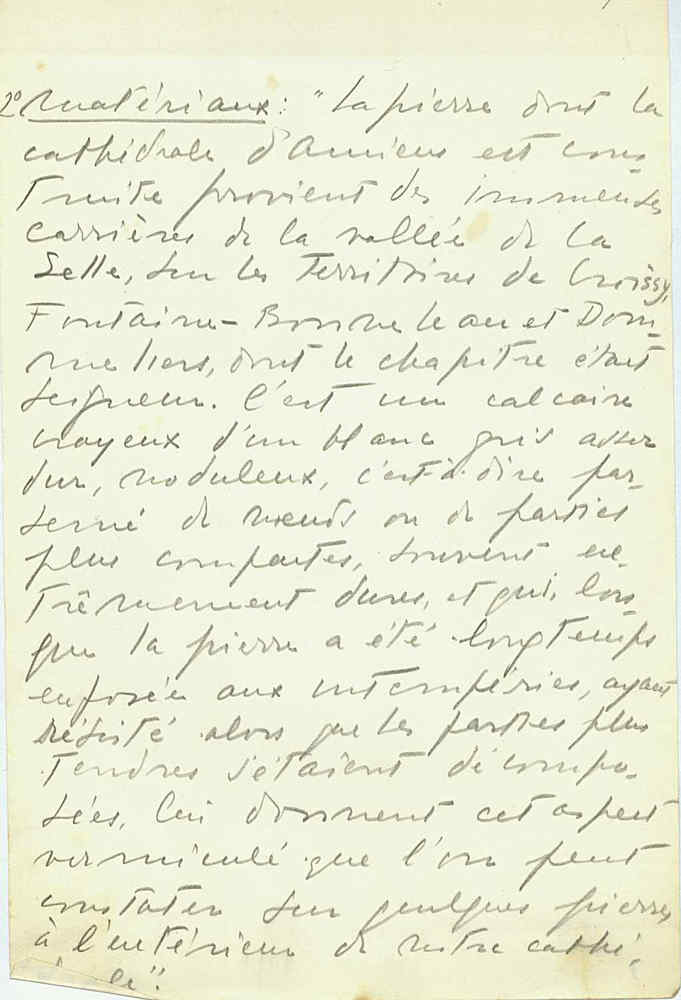 2° Matériaux : "La pierre dont la
cathédrale d'Amiens est cons-
truite provient des immenses
carrières de la vallée de la
Selle, sur les territoires de Croissy,
Fontaine-Bonneleau et Dom-
meliers, dont le chapitre était
seigneur. C'est un calcaire
crayeux d'un blanc gris assez
dur, noduleux, c'est-à-dire par-
semé de nœuds ou de parties
plus compactes, souvent ex-
trêmement dures, et qui, lors-
que la pierre a été longtemps
exposée aux intempéries, ayant
résisté alors que les parties plus
tendres s'étaient décompo-
sées, lui donnent cet aspect
vermiculé que l'on peut
constater sur quelques pierres
à l'extérieur de notre cathé-